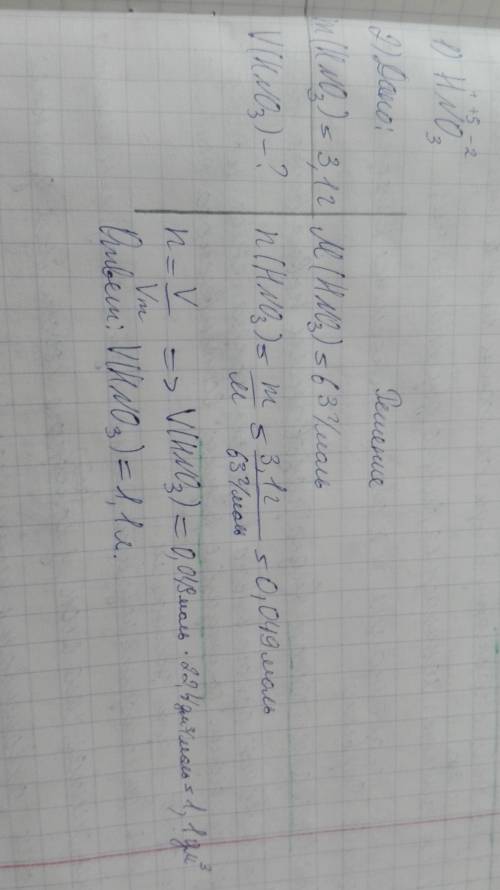 1) H⁺¹N⁺⁵O₃⁻²
2) Дано:
m(HNO₃) = 3,1г
V(HNO₃) - ?
Решение
M(HNO₃) = 63 г/моль
n(HNO₃) = m/M = 3,1г/63 г/моль = 0,049 моль
n = V/Vm => V(HNO₃) = 0,049 моль · 22,4 дм³/моль = 1,1 дм³
Ответ: V(HNO₃) = 1,1 л.